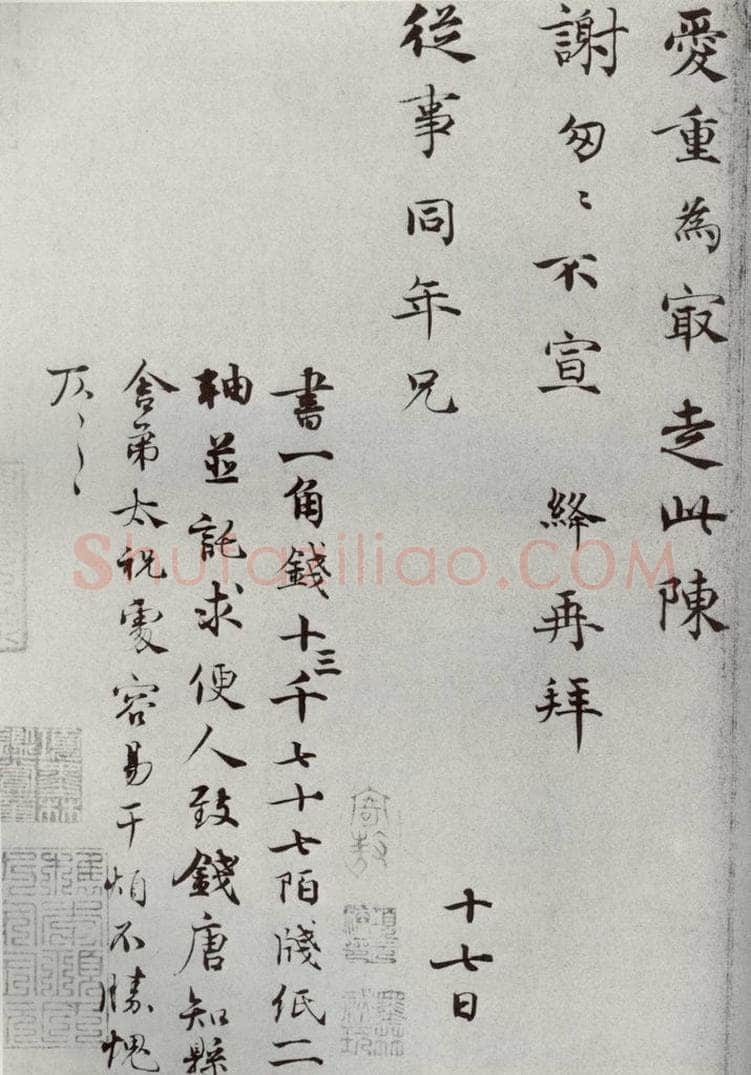 愛重為寂走此陳
謝匆〻不宣 絳再拜
從事同年兄
十七日
書一角錢十三千七十七陌牋紙二
軸並託求便人致錢唐知縣
舍弟太祝處容易干煩不勝愧
仄〻〻
ShufaZiliao.COM